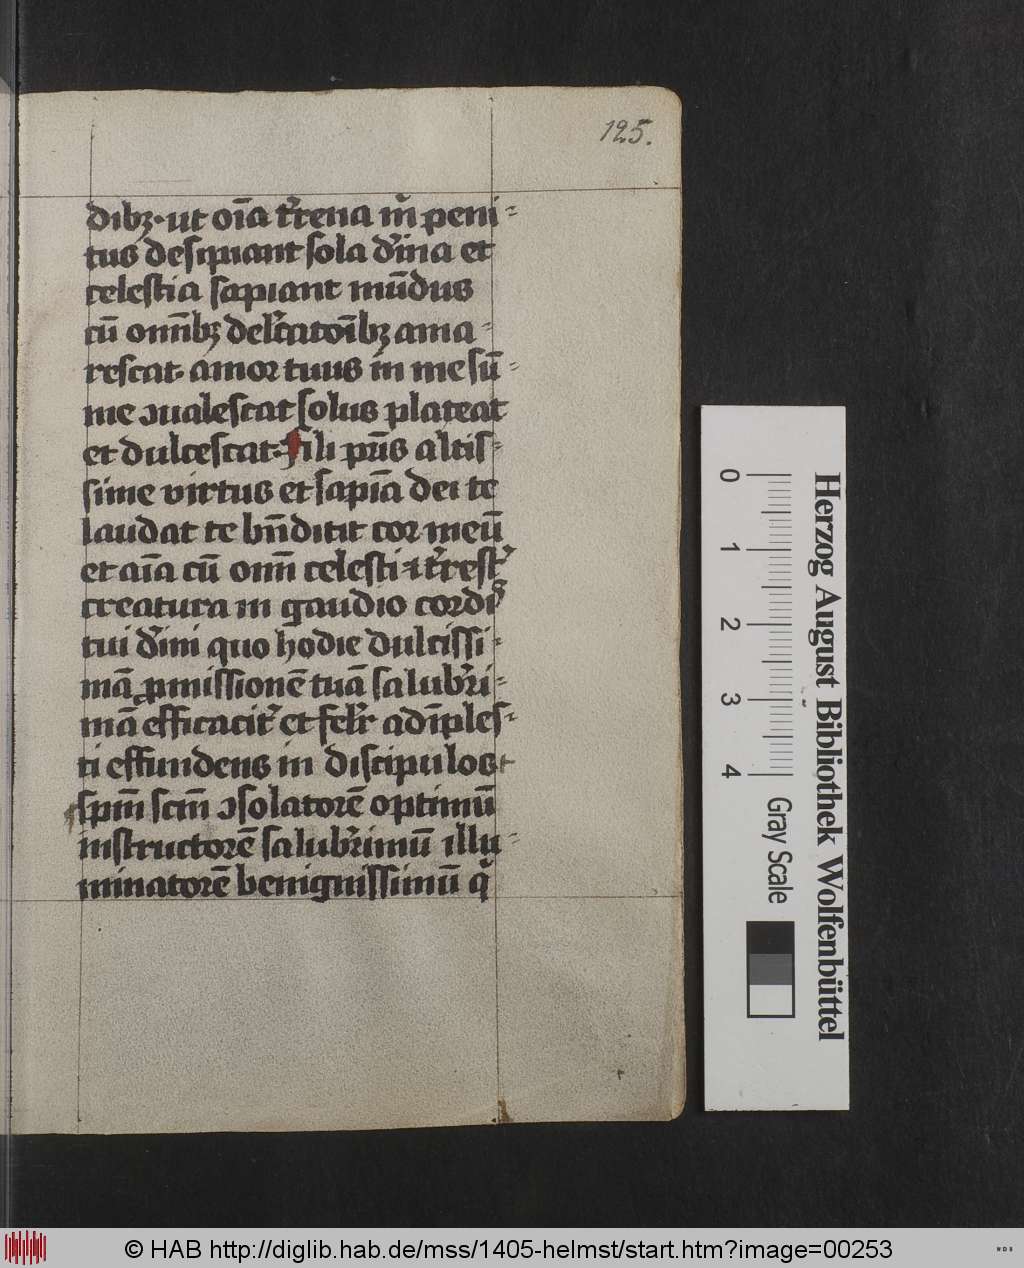 125.
dibꝫ· ut oīa t̾rena m̊ peni=
tus desipiant sola d̾ina et
celestia sapiant mūdus
cū om̄ibꝫ delc̄atoībꝫ ama=
rescat· amor tuus in me sū=
me ↄualescat solus placeat
et dulcescat· Fili pr̄is altis=
sime virtus et sapīa dei te
laudat te bn̄dicit cor meū
et aīa cū om̄i celesti et t̾rest̾
creatura in gaudio cordis
tui d̾ini quo hodie dulcissi=
mā ꝓmissionē tuā salub̾ri=
mā efficacit̾ et felr̄ adīples=
ti effundens in discipulos
spm̄ scm̄ ↄsolatorē optimū
instructorē salub̾rimū illu=
minatorē benignissimū q̊
Herzog August Bibliothek Wolfenbüttel
0 1 2 3 4 Gray Scale
© HAB http://diglib.hab.de/mss/1405-helmst/start.htm?image=00253